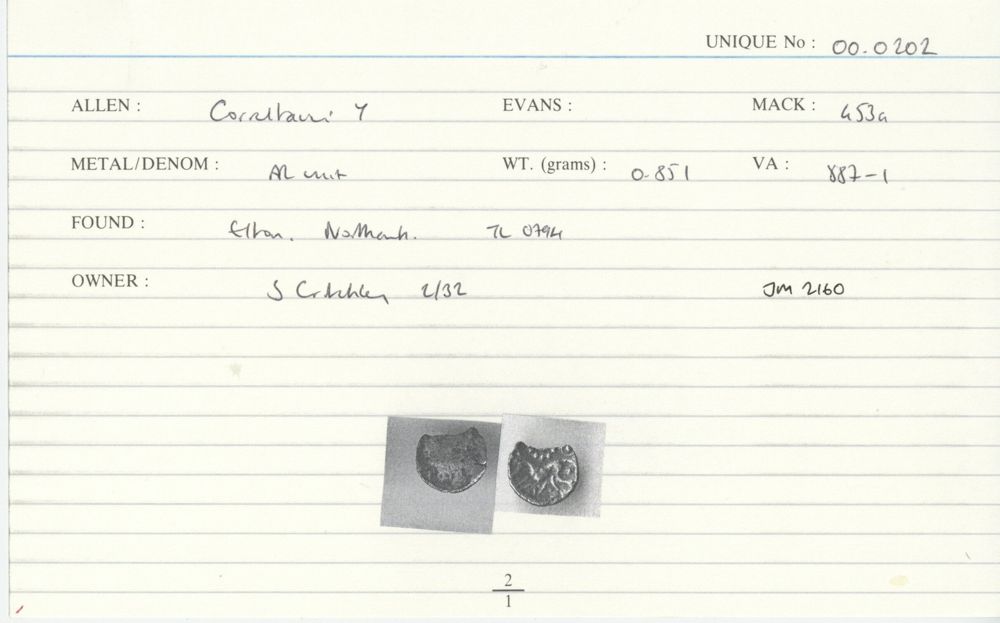 UNIQUE No : 00.0202
ALLEN : Corieltauvi Y EVANS : MACK : 453a
METAL/DENOM : AR unit WT. (grams) : 0.851 VA : 887-1
FOUND : Elton. Northants. TL 0794
OWNER : S Critchley 2/32 JM 2160
2
1